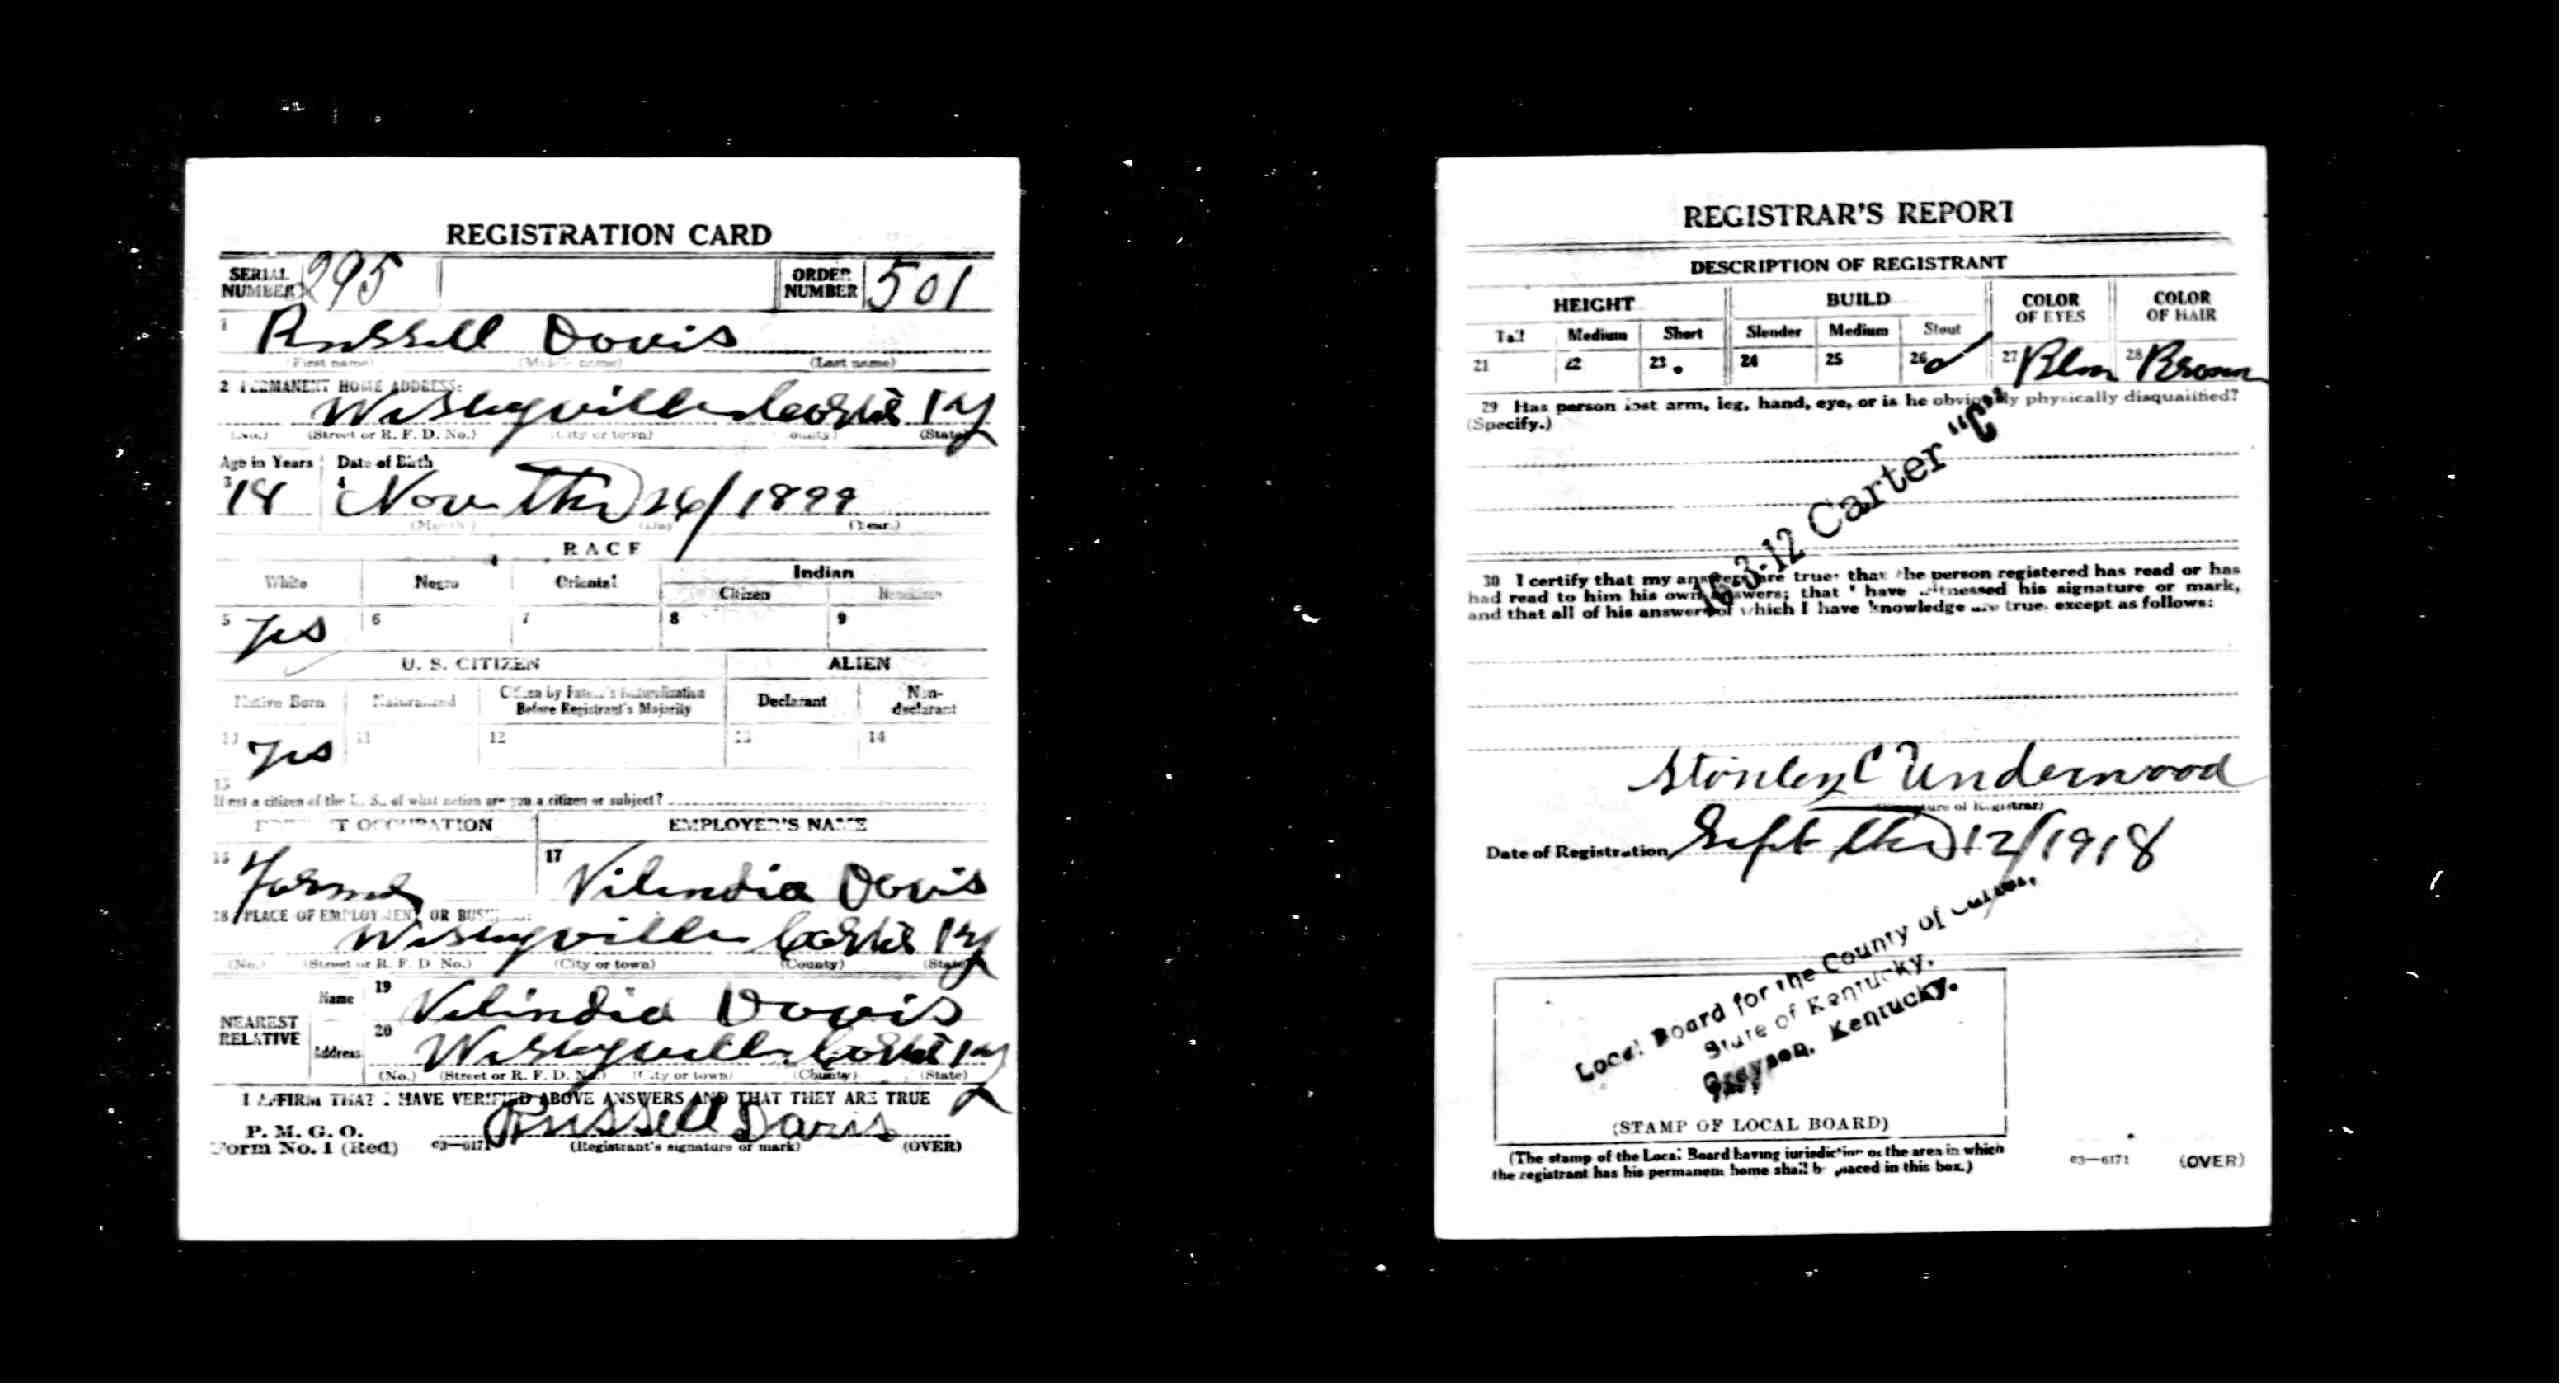 REGISTRATION CARD
SERIAL NUMBER 295 ORDER NUMBER 501
1 Russell Davis
(First name) (Middle name) (Last name)
2 PERMANENT HOME ADDRESS:
Carter Ky
(No.) (Street or R. F. D. No.) (City or town) (County) (State)
Age in Years Date of Birth
3 18 4 Nov the 26/1899
(Month) (Day) (Year)
RACE
White Negro Oriental Indian
Citizen
5 Yes 6 7 8 9
U. S. CITIZEN ALIEN
Native Born Naturalized Citizen by Father's Naturalization Before Registrant's Majority Declarant Non-declarant
10 Yes 11 12 13 14
15
If not a citizen of the U. S., of what nation are you a citizen or subject?
PRESENT OCCUPATION EMPLOYER'S NAME
16 Farmer 17 Davis
18 PLACE OF EMPLOYMENT OR BUSINESS:
Carter Ky
(No.) (Street or R. F. D. No.) (City or town) (County) (State)
NEAREST RELATIVE Name 19 Davis
Address 20 Carter Ky
(No.) (Street or R. F. D. No.) (City or town) (County) (State)
I AFFIRM THAT I HAVE VERIFIED ABOVE ANSWERS AND THAT THEY ARE TRUE
P. M. G. O.
Form No. 1 (Red) 03—6171 Russell Davis
(Registrant's signature or mark) (OVER)
REGISTRAR'S REPORT
DESCRIPTION OF REGISTRANT
HEIGHT BUILD COLOR OF EYES COLOR OF HAIR
Tall Medium Short Slender Medium Stout
21 22 23 24 25 26 ✓ 27 Blue 28 Brown
29 Has person lost arm, leg, hand, eye, or is he obviously physically disqualified?
(Specify.)
16-3-12 Carter "C"
30 I certify that my answers are true; that the person registered has read or has
had read to him his own answers; that I have witnessed his signature or mark,
and that all of his answers of which I have knowledge are true, except as follows:
Stanley C Underwood
(Signature of Registrar)
Date of Registration Sept the 12/1918
Local Board for the County of Carter,
State of Kentucky,
Grayson, Kentucky.
(STAMP OF LOCAL BOARD)
(The stamp of the Local Board having jurisdiction of the area in which
the registrant has his permanent home shall be placed in this box.)
03—6171 (OVER)